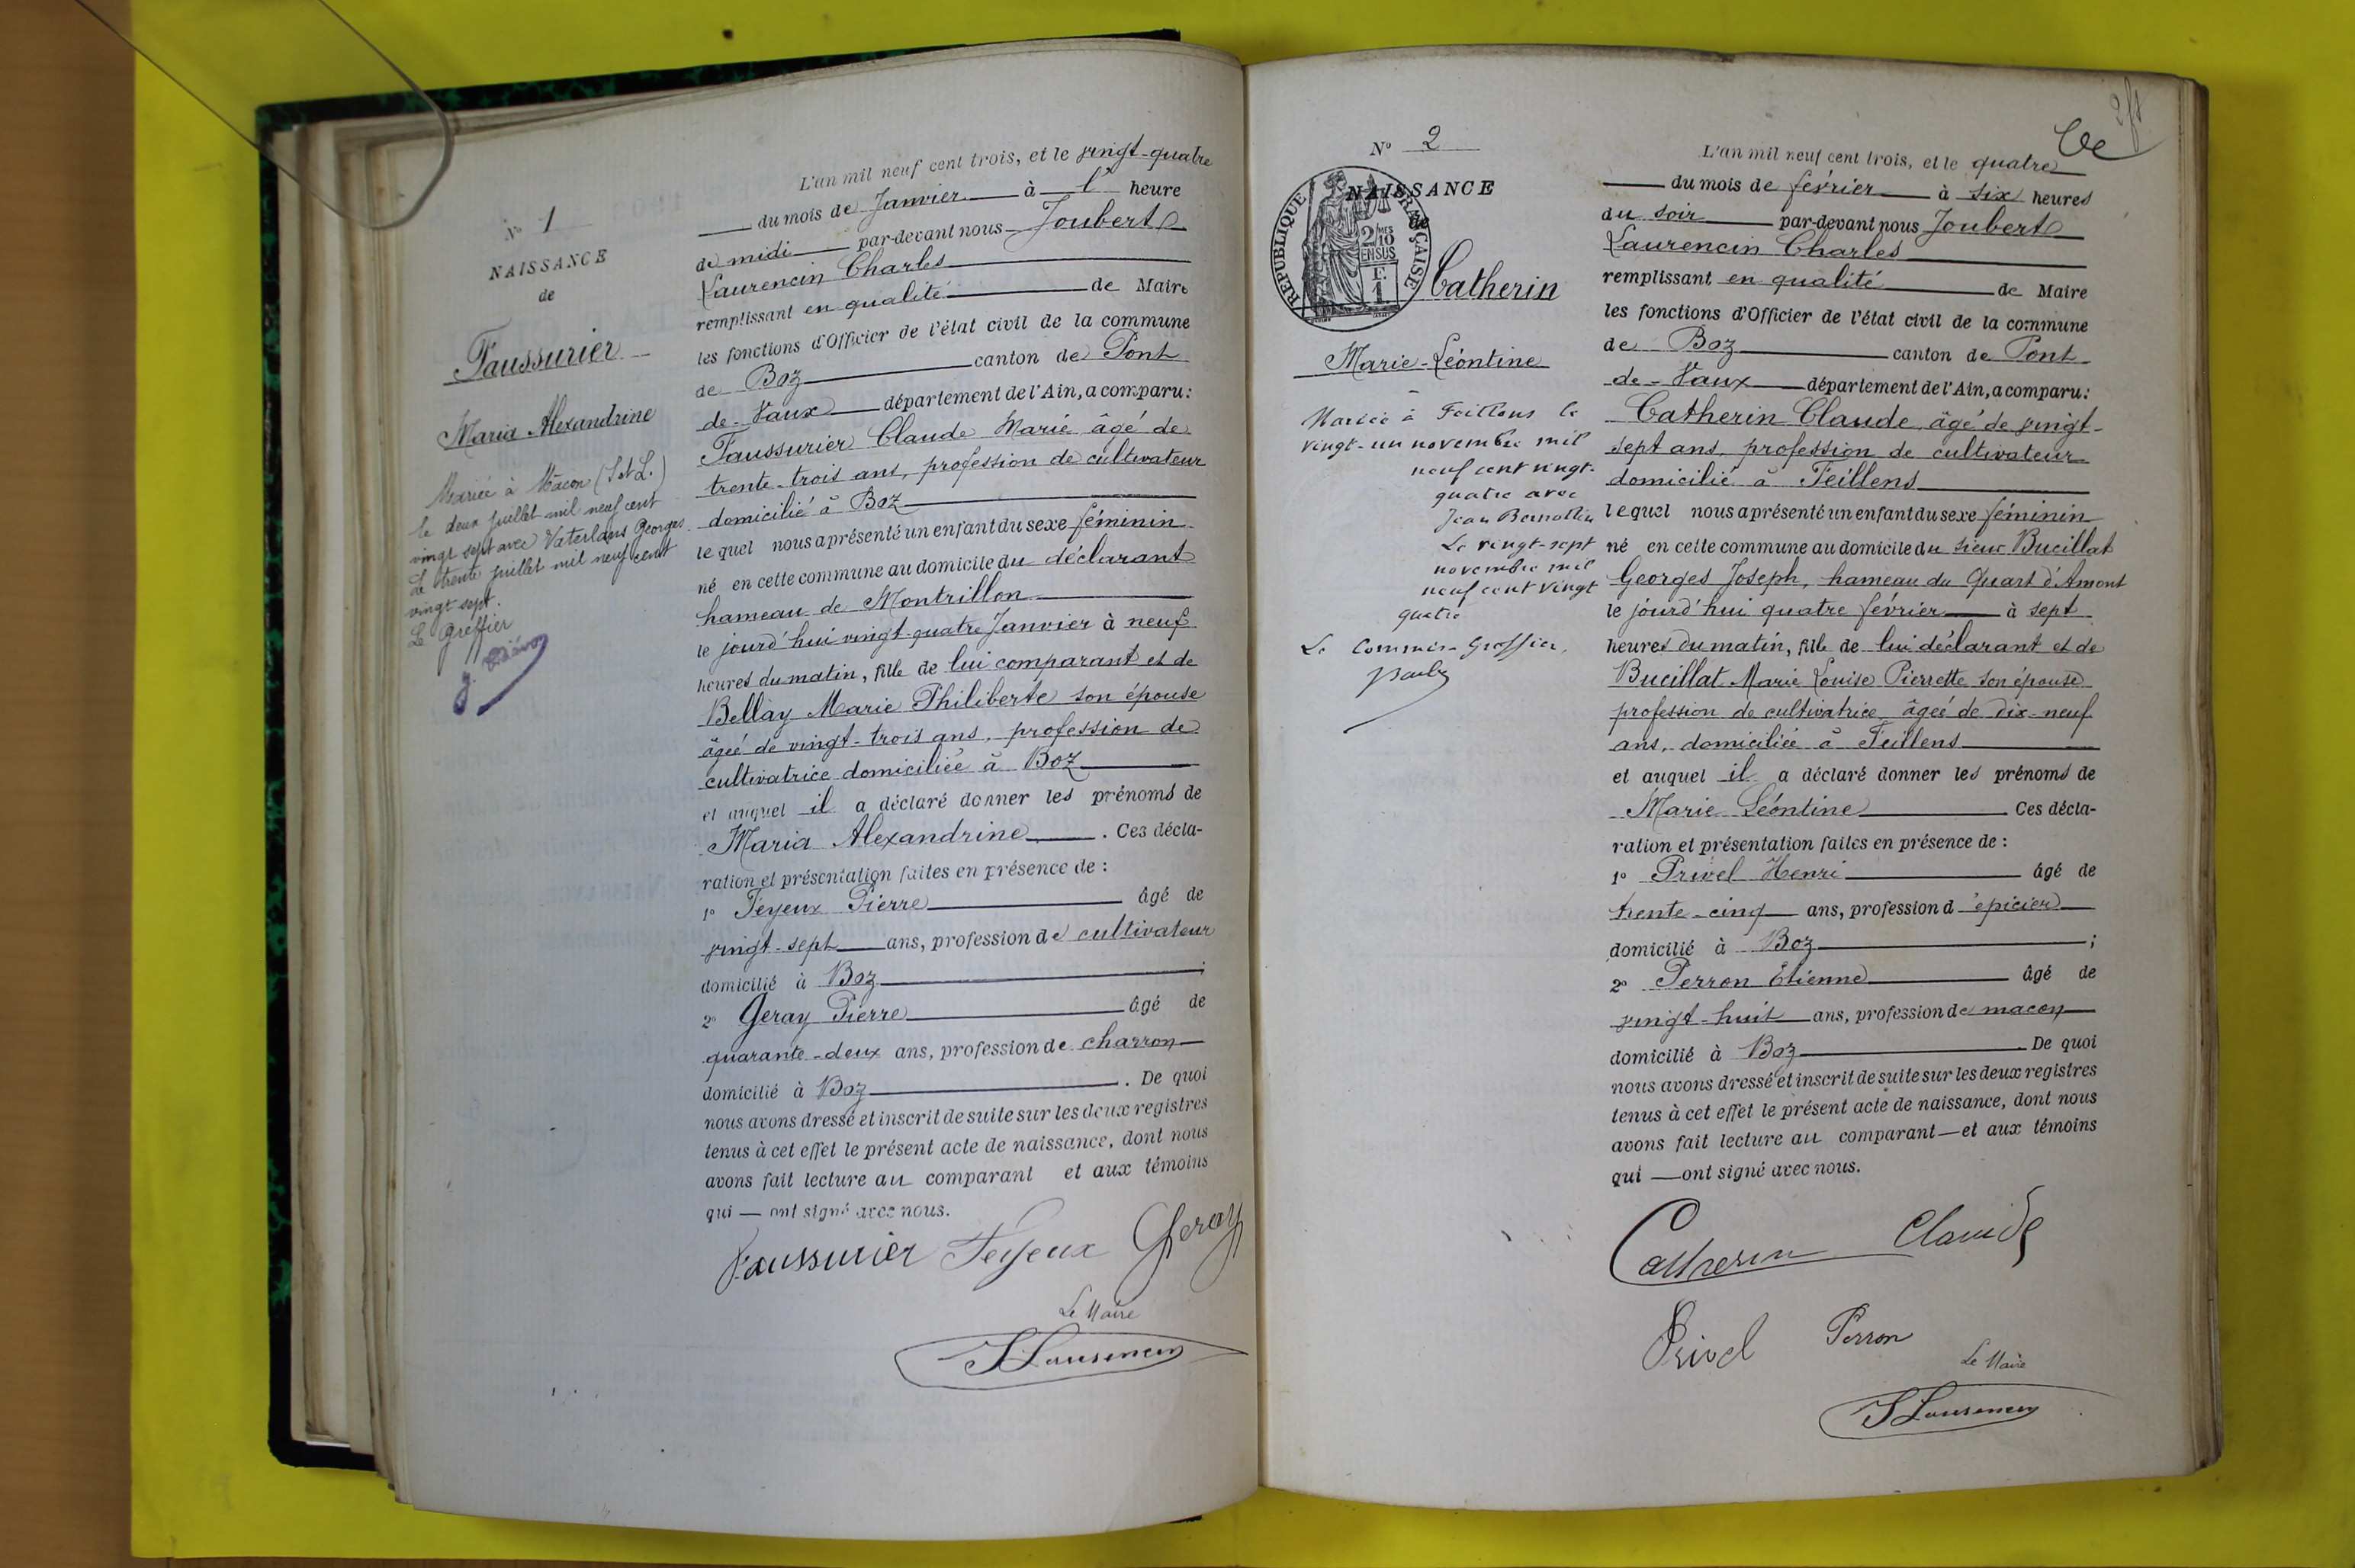 N° 1
NAISSANCE
de
Faussurier
Maria Alexandrine
Mariée à Mâcon (S et L.)
le deux juillet mil neuf cent
vingt sept avec Vaterlaus Georges
Le trente juillet mil neuf cent
vingt sept.
Le Greffier
L'an mil neuf cent trois, et le vingt-quatre
du mois de Janvier à 1 heure
de midi par-devant nous Joubert
Laurencin Charles
remplissant en qualité de Maire
les fonctions d'Officier de l'état civil de la commune
de Boz canton de Pont
de-Vaux département de l'Ain, a comparu:
Faussurier Claude Marie âgé de
trente-trois ans, profession de cultivateur
domicilié à Boz
lequel nous a présenté un enfant du sexe féminin
né en cette commune au domicile du déclarant
hameau de Montrillon
le jourd'hui vingt-quatre Janvier à neuf
heures du matin, fille de lui comparant et de
Bellay Marie Philiberte son épouse
âgée de vingt-trois ans, profession de
cultivatrice domiciliée à Boz
et auquel il a déclaré donner les prénoms de
Maria Alexandrine. Ces décla-
ration et présentation faites en présence de :
1° Feyeux Pierre âgé de
vingt-sept ans, profession de cultivateur
domicilié à Boz ;
2° Geray Pierre âgé de
quarante-deux ans, profession de charron
domicilié à Boz. De quoi
nous avons dressé et inscrit de suite sur les deux registres
tenus à cet effet le présent acte de naissance, dont nous
avons fait lecture au comparant et aux témoins
qui — ont signé avec nous.
Faussurier Feyeux Geray
Le Maire
J Laurencin
N° 2
NAISSANCE
de
REPUBLIQUE FRANÇAISE
2/10
EN SUS
Catherin
Marie-Léontine
Mariée à Feillens le
vingt-un novembre mil
neuf cent vingt-
quatre avec
Jean
Le vingt-sept
novembre mil
neuf cent vingt
quatre
Le Commis-Greffier,
L'an mil neuf cent trois, et le quatre
du mois de février à six heures
du soir par-devant nous Joubert
Laurencin Charles
remplissant en qualité de Maire
les fonctions d'Officier de l'état civil de la commune
de Boz canton de Pont
de-Vaux département de l'Ain, a comparu:
Catherin Claude, âgé de vingt-
sept ans, profession de cultivateur
domicilié à Feillens
lequel nous a présenté un enfant du sexe féminin
né en cette commune au domicile du sieur Bucillat
Georges Joseph, hameau du Quart d'Amont
le jourd'hui quatre février à sept
heures du matin, fille de lui déclarant et de
Bucillat Marie Louise Pierrette son épouse
profession de cultivatrice âgée de dix-neuf
ans, domiciliée à Feillens
et auquel il a déclaré donner les prénoms de
Marie Léontine Ces décla-
ration et présentation faites en présence de :
1° Privel Henri âgé de
trente-cinq ans, profession d'épicier
domicilié à Boz ;
2° Perron Etienne âgé de
vingt-huit ans, profession de maçon
domicilié à Boz. De quoi
nous avons dressé et inscrit de suite sur les deux registres
tenus à cet effet le présent acte de naissance, dont nous
avons fait lecture au comparant—et aux témoins
qui —ont signé avec nous.
Catherin Claude
Privel Perron
Le Maire
J Laurencin